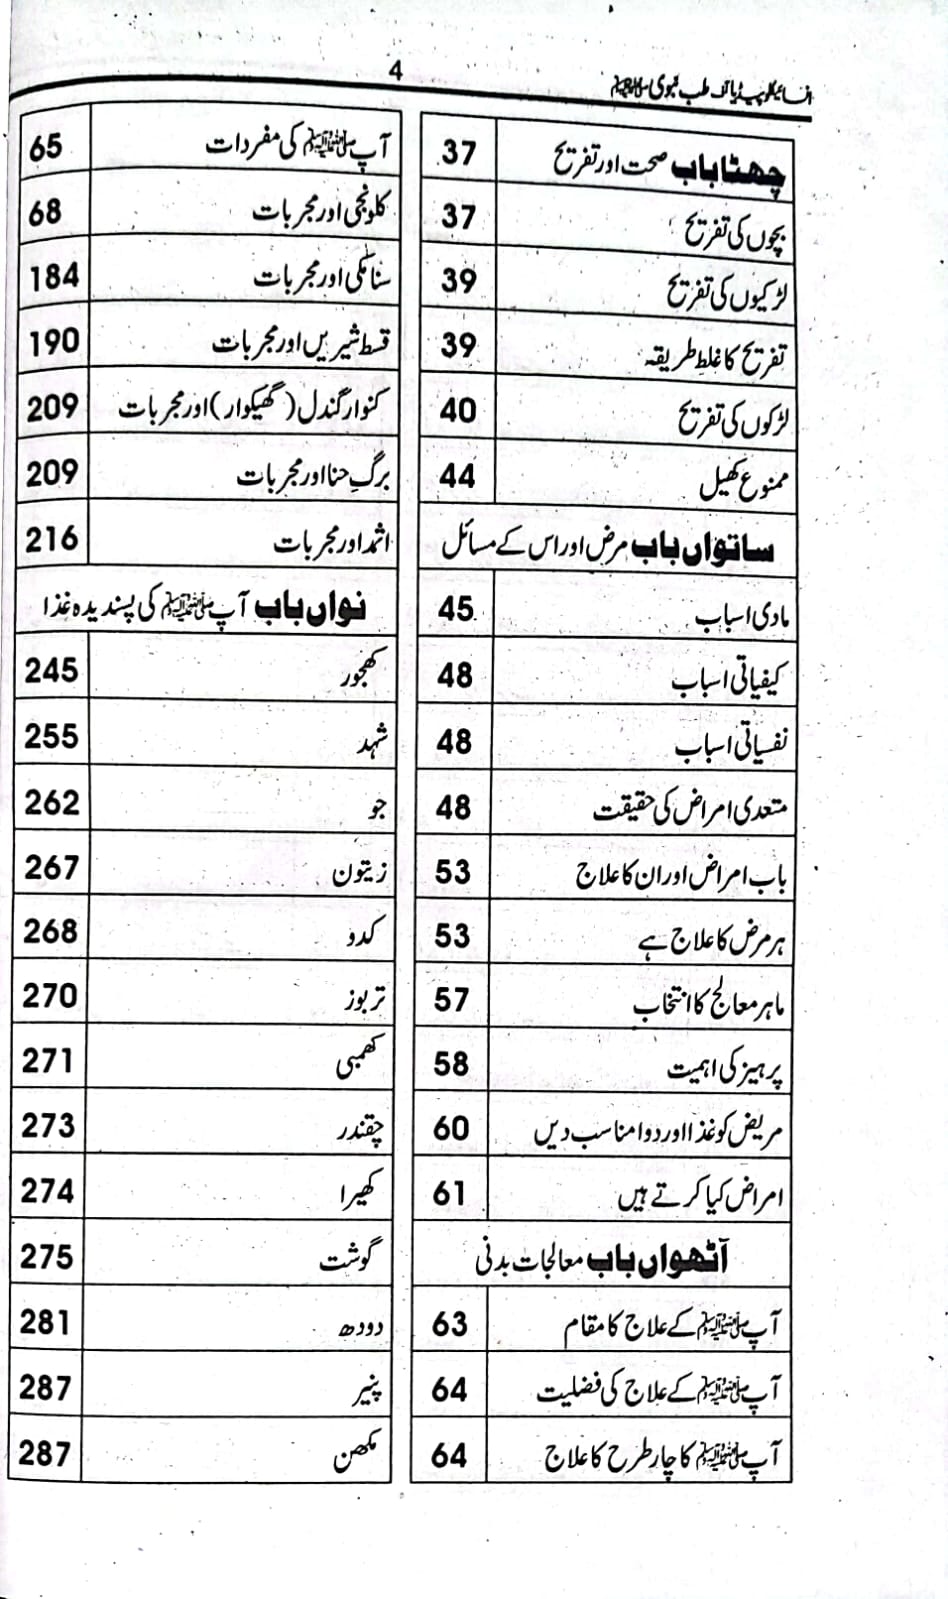 انسائیکلوپیڈیا آف طب نبوی ﷺ
4
چھٹا باب صحت اور تفریح 37
بچوں کی تفریح 37
لڑکیوں کی تفریح 39
تفریح کا غلط طریقہ 39
لڑکوں کی تفریح 40
ممنوع کھیل 44
ساتواں باب مرض اور اس کے مسائل
مادی اسباب 45
کیفیاتی اسباب 48
نفسیاتی اسباب 48
متعدی امراض کی حقیقت 48
باب امراض اور ان کا علاج 53
ہر مرض کا علاج ہے 53
ماہر معالج کا انتخاب 57
پرہیز کی اہمیت 58
مریض کو غذا اور دوا مناسب دیں 60
امراض کیا کرتے ہیں 61
آٹھواں باب معالجات بدنی
آپ ﷺ کے علاج کا مقام 63
آپ ﷺ کے علاج کی فضلیت 64
آپ ﷺ کا چار طرح کا علاج 64
آپ ﷺ کی مفردات 65
کلونجی اور مجربات 68
سنا مکی اور مجربات 184
قسط شیریں اور مجربات 190
کنوار گندل (گھیکوار) اور مجربات 209
برگِ حنا اور مجربات 209
اثمد اور مجربات 216
نواں باب آپ ﷺ کی پسندیدہ غذا
کھجور 245
شہد 255
جو 262
زیتون 267
کدو 268
تربوز 270
کھمبی 271
چقندر 273
کھیرا 274
گوشت 275
دودھ 281
پنیر 287
مکھن 287